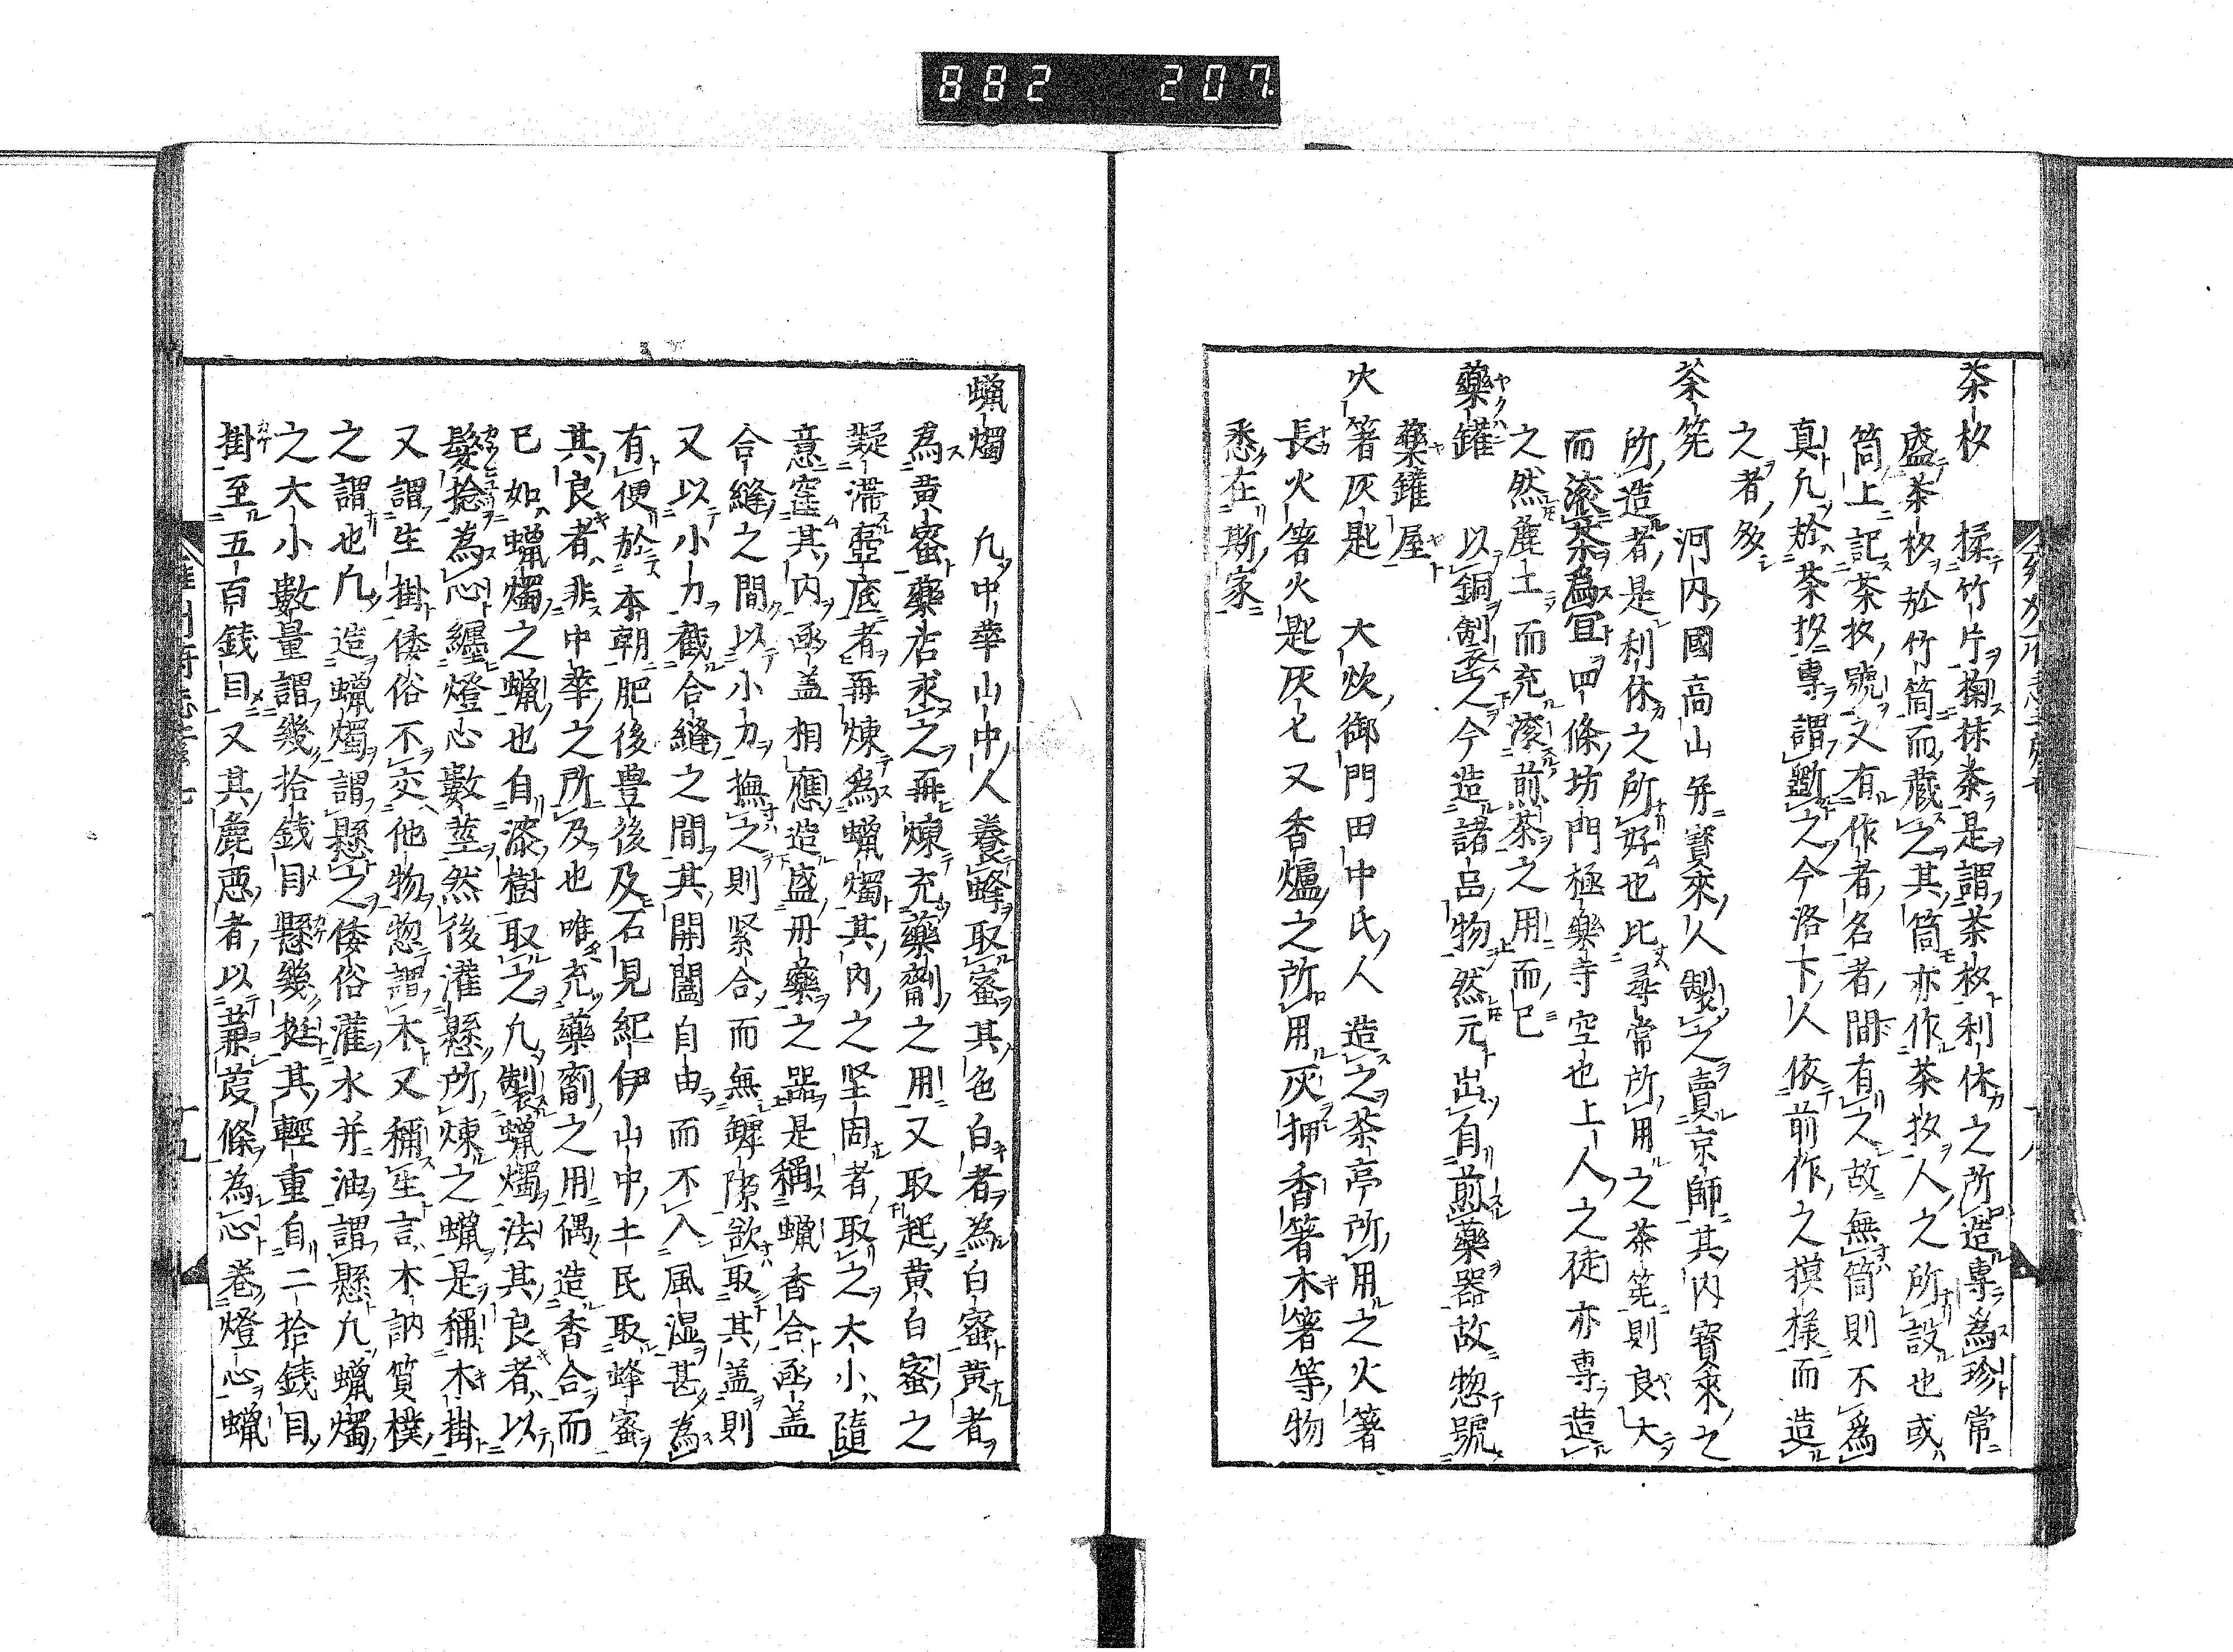 882 207
茶杦 揉竹片掬抹茶是謂茶杦利休之所造專為珍常
盛茶杦於竹筒而藏之其筒亦作茶扙人之所設也或
筒上記茶扙號又有作者名者間有之故無筒則不為
真凢於茶扙專謂斲之今洛下人依前作之摸樣而造
之者多
茶筅 河内國高山并寳來人製之賣京師其内寳來之
所造者是利休之所好也比尋常所用之茶筅則良大
而滾茶為宜四條坊門極樂寺空也上人之徒亦專造
之然麁土而充滚煎茶之用而已
藥鑵 以銅製之人今造諸品物然元出自煎藥器故惣號
藥鑵屋
火箸灰匙 大炊御門田中氏人造之茶亭所用之火箸
長火箸火匙灰匕又香爐之所用灰押香箸木箸等物
悉在斯家
蠟燭 凢中華山中人養蜂取蜜其色白者為白蜜黄者
為黄蜜藥店求之再煉充藥劑之用又取起黄白蜜之
凝滯壺底者再煉為蠟燭其内之坚固者取之大小隨
意窪其内函盖相應造盛丹藥之器是稱蠟香合函盖
合縫之間以小力撫之則緊合而無罅隙欲取其盖則
又以小力截合縫之間其開闔自由而不入風湿甚為
有便於本朝肥後豊後及石見紀伊山中土民取蜂蜜
其良者非中華之所及也唯充藥劑之用偶造香合而
已如蠟燭之蠟也自漆樹取之凢製蠟燭法其良者以
髮捻為心纒燈心數莖然後灌懸所煉之蠟是稱木掛
又謂生掛倭俗不交他物惣謂木又稱生言木訥質樸
之謂也凢造蠟燭謂懸之倭俗灌水并油謂懸凢蠟燭
之大小數量謂幾拾錢目懸幾挺其輕重自二拾錢目
掛至五百錢目又其麁悪者以蒹葭條為心巻燈心蠟